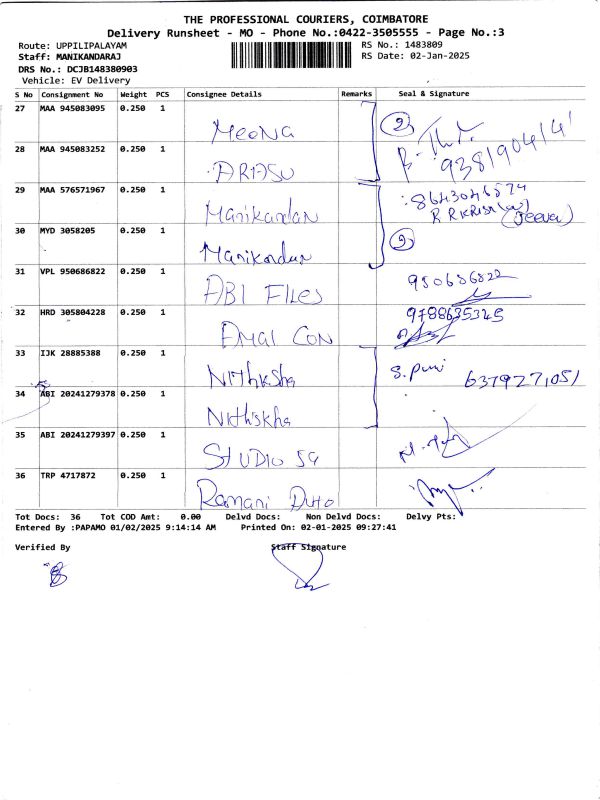 THE PROFESSIONAL COURIERS, COIMBATORE
Delivery Runsheet - MO - Phone No.:0422-3505555 - Page No.:3
Route: UPPILIPALAYAM RS No.: 1483809
Staff: MANIKANDARAJ RS Date: 02-Jan-2025
DRS No.: DCJB148380903
Vehicle: EV Delivery
S No Consignment No Weight PCS Consignee Details Remarks Seal & Signature
27 MAA 945083095 0.250 1 Meena 2
28 MAA 945083252 0.250 1 ARASU 9381904141
29 MAA 576571967 0.250 1 Manikandan 8643046574
(Jeeva)
30 MYD 3058205 0.250 1 Manikandan 2
31 VPL 950686822 0.250 1 ABI FILES 950686822
32 HRD 305804228 0.250 1 EMAI CON 9788635345
33 IJK 28885388 0.250 1 Nithksha S. 6379271051
34 ABI 20241279378 0.250 1 Nithiskha
35 ABI 20241279397 0.250 1 STUDIO 59
36 TRP 4717872 0.250 1 Ramani Auto
Tot Docs: 36 Tot COD Amt: 0.00 Delvd Docs: Non Delvd Docs: Delvy Pts:
Entered By :PAPAMO 01/02/2025 9:14:14 AM Printed On: 02-01-2025 09:27:41
Verified By Staff Signature